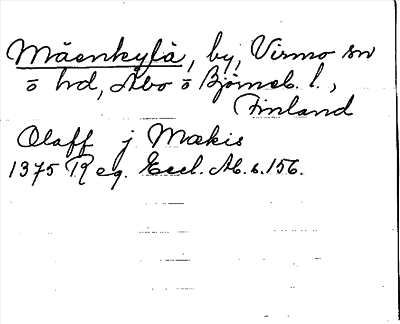 Mäenkylä, by, Virmo sn
o hd, Åbo o Björneb. l.,
Finland
Olaff j Mækis
1375 Reg. Eccl. Ab. s. 156.